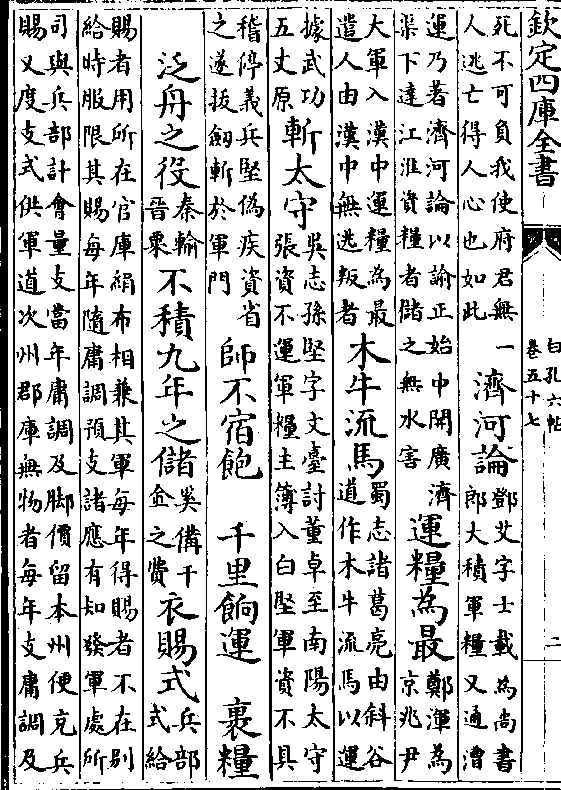 欽定四庫全書
白孔六帖
卷五十七
二
死不可負我使府君無一
人逃亡得人心也如此
濟河論
鄧艾字士載為尚書
郎大積軍糧又通漕
運乃著濟河論以諭正始中開廣濟
渠下達江淮資糧者儲之無水害
運糧為最
鄭渾為
京兆尹
大軍入漢中運糧為最
遣人由漢中無逃叛者
木牛流馬
蜀志諸葛亮由斜谷
道作木牛流馬以運
據武功
五丈原
斬太守
吳志孫堅字文臺討董卓至南陽太守
張資不運軍糧主簿入白堅軍資不具
稽停義兵堅偽疾資省
之遂拔劒斬於軍門
師不宿飽 千里餉運 裹糧
泛舟之役
秦輸
晉粟
不積九年之儲
奚備千
金之費
衣賜式
兵部
式給
賜者用所在官庫絹布相兼其軍每年得賜者不在別
給時服限其賜每年隨庸調預支諸應有知發軍處所
司與兵部計會量支當年庸調及脚價留本州便充兵
賜又度支式供軍道次州郡庫無物者每年支庸調及